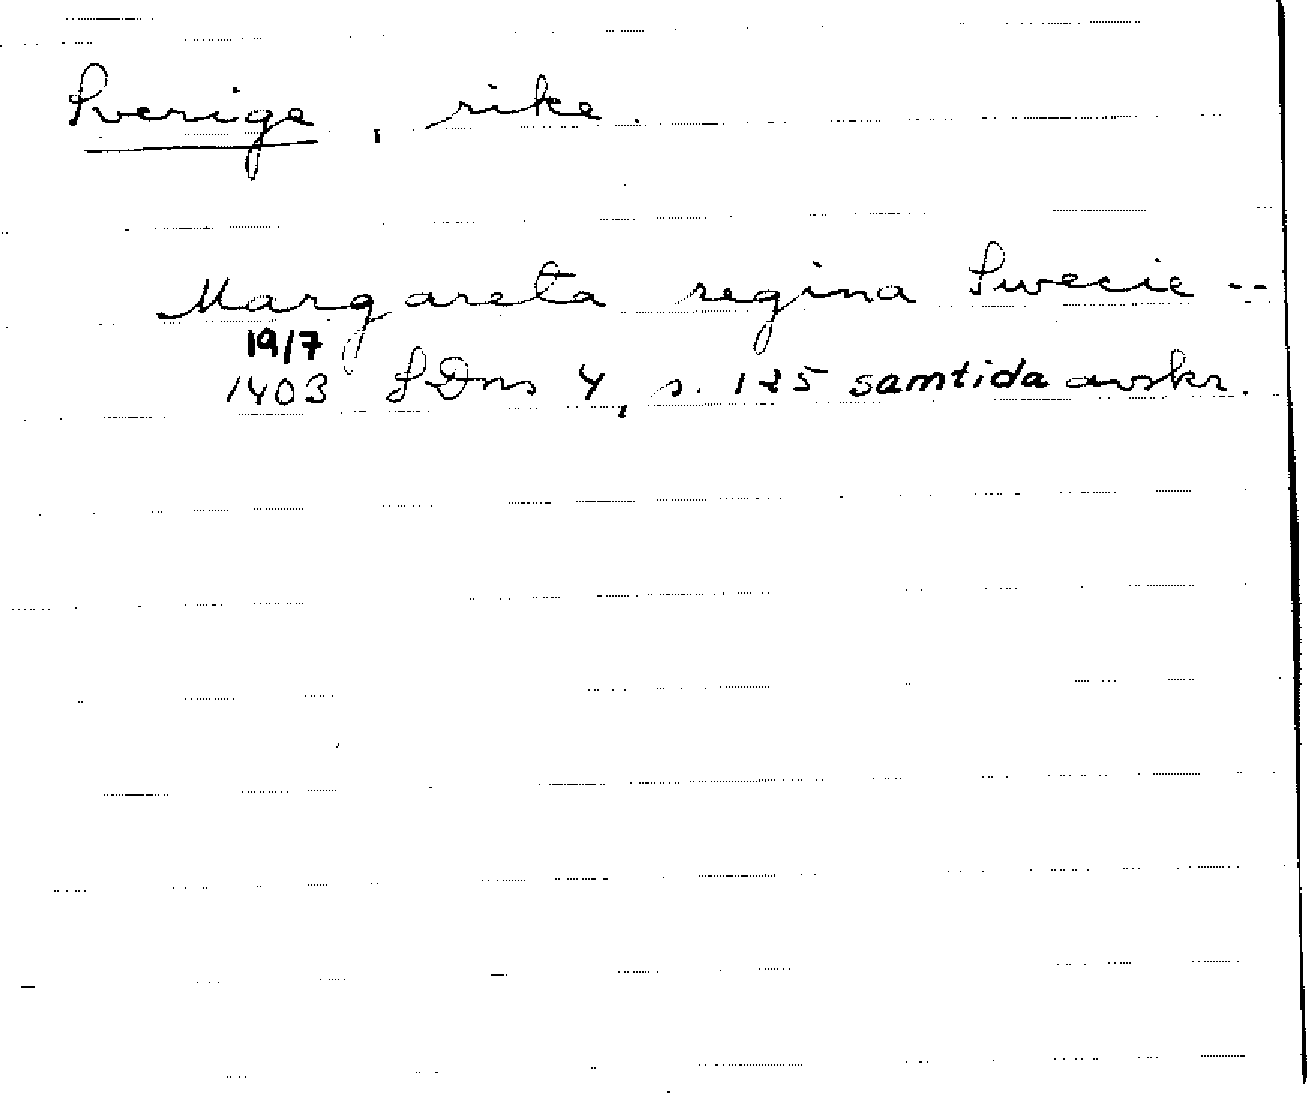 Sverige, rike.
Margareta regina Swecie --
19/7
1403 SDns 4, s. 125 samtida avskr.